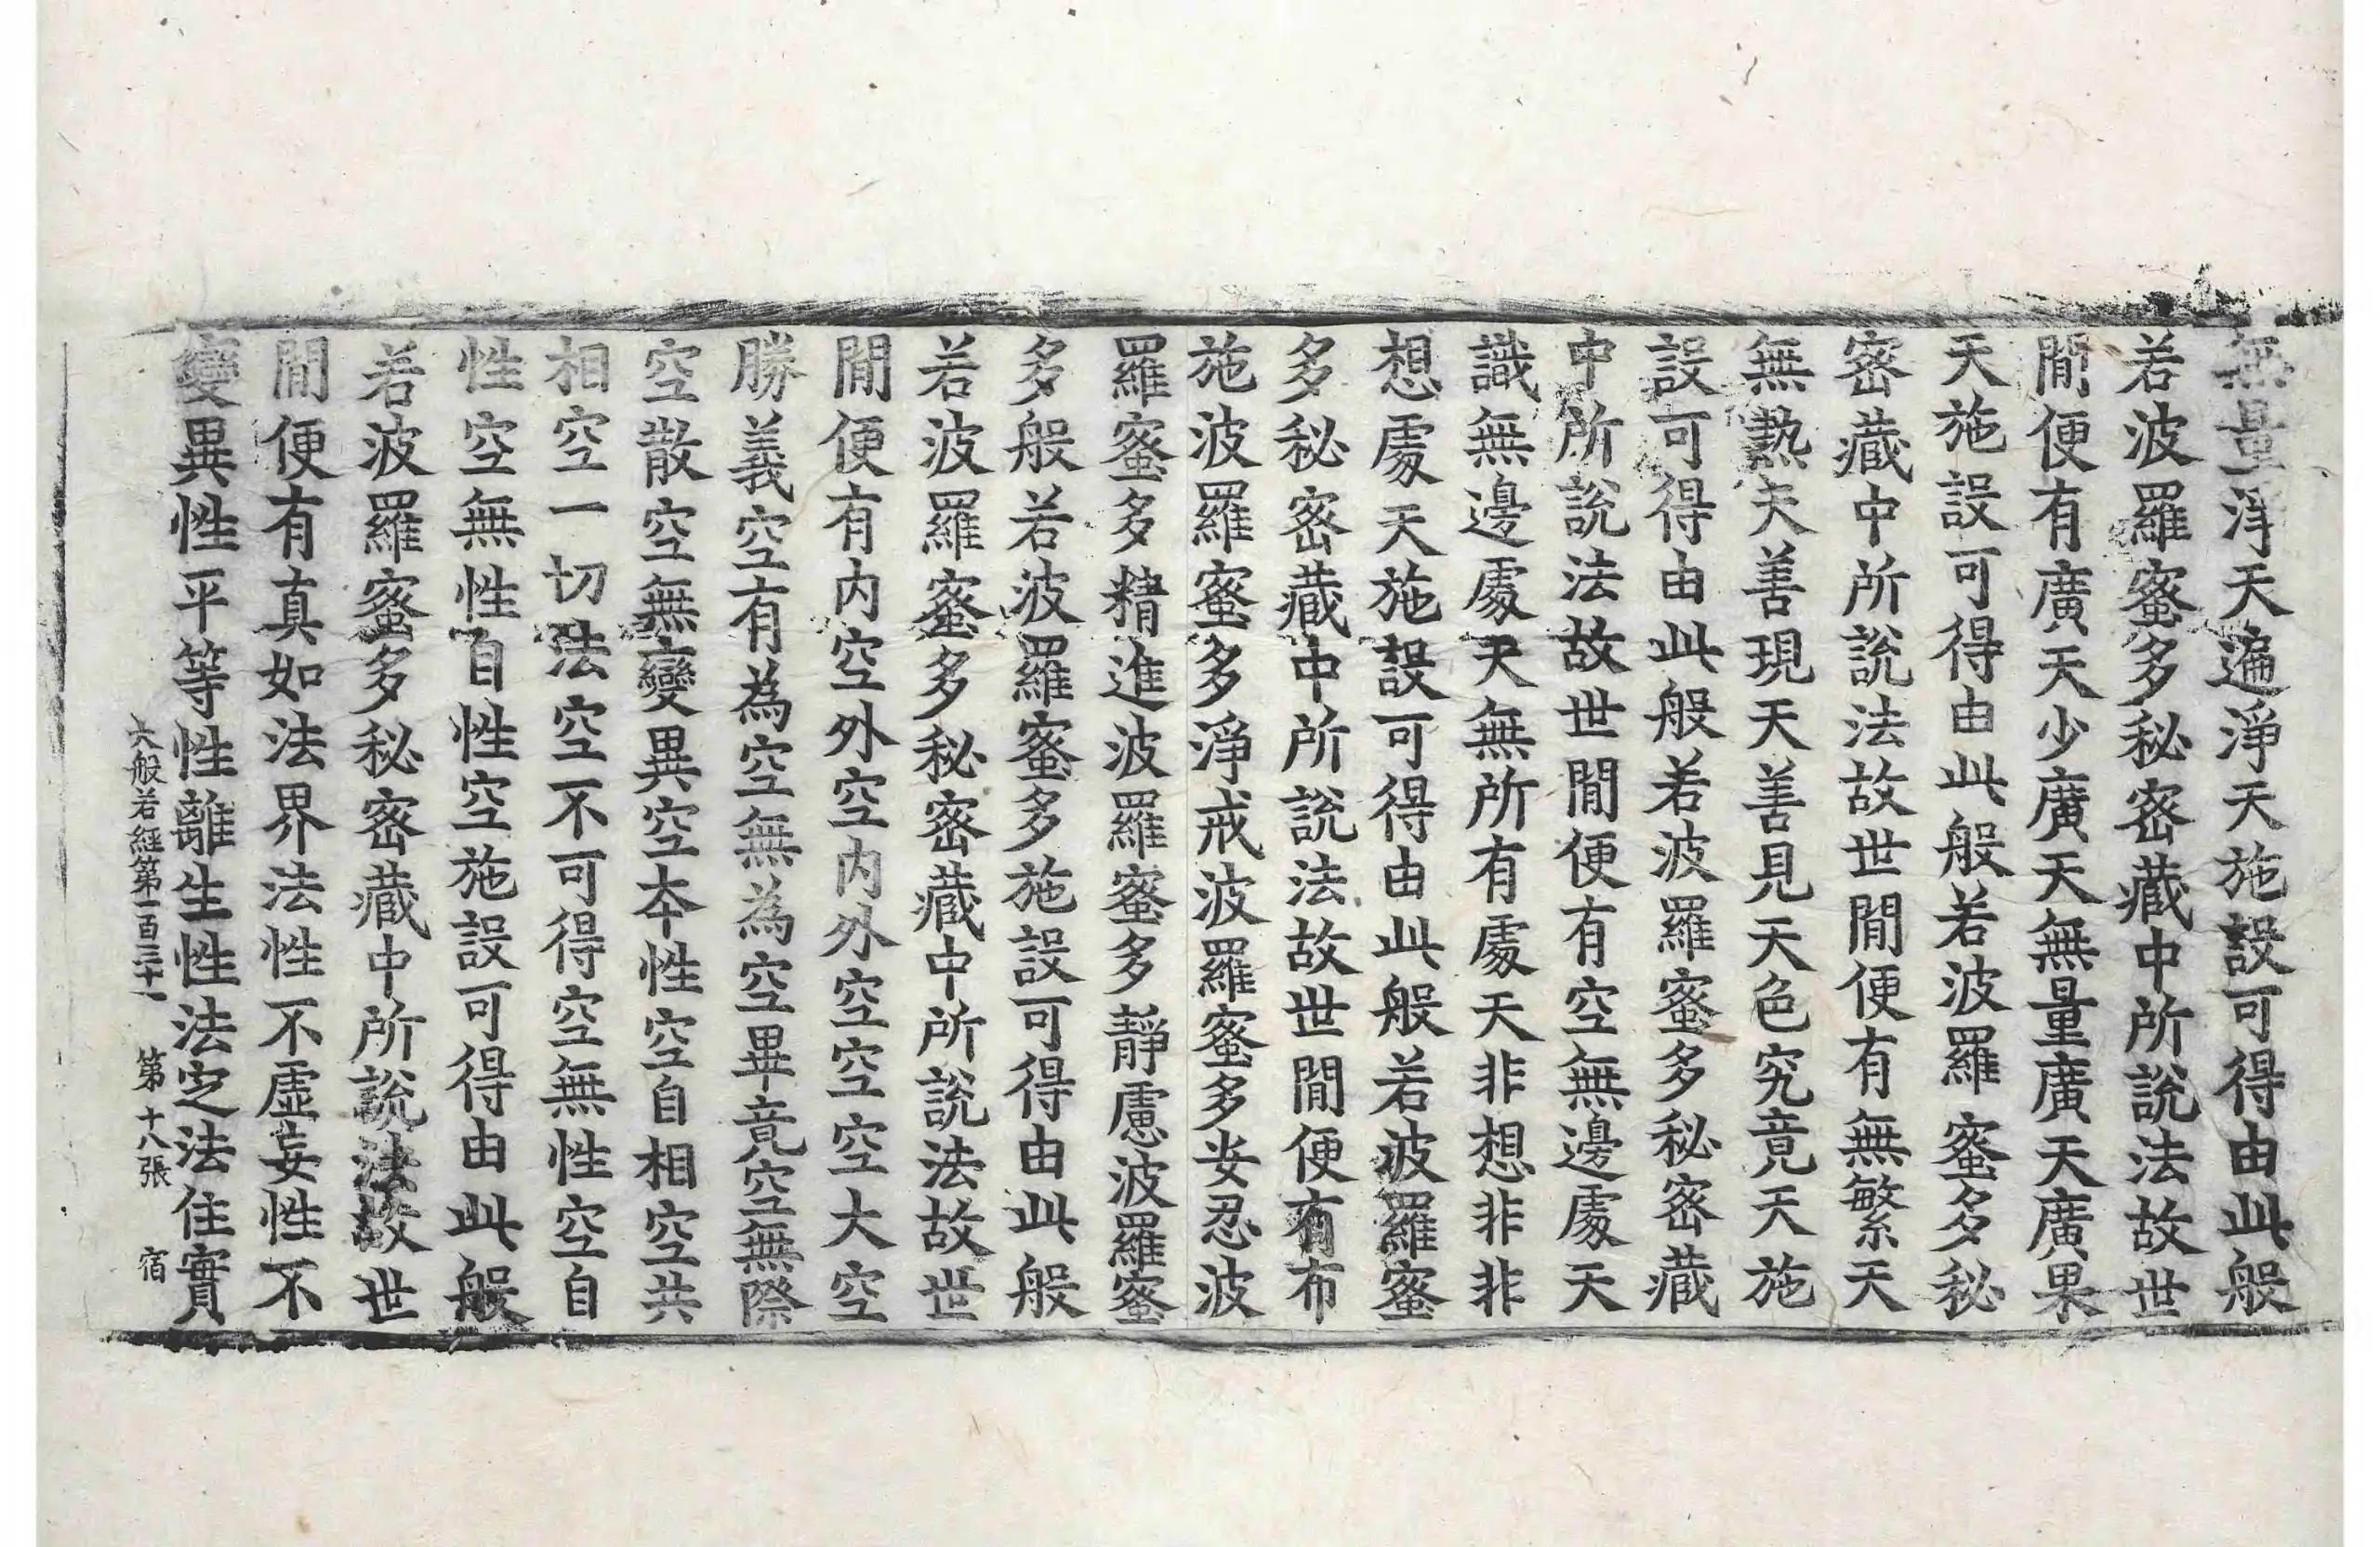 無量淨天遍淨天施設可得由此般
若波羅蜜多秘密藏中所說法故世
閒便有廣天少廣天無量廣天廣果
天施設可得由此般若波羅蜜多秘
密藏中所說法故世閒便有無繁天
無熱天善現天善見天色究竟天施
設可得由此般若波羅蜜多秘密藏
中所說法故世閒便有空無邊處天
識無邊處天無所有處天非想非非
想處天施設可得由此般若波羅蜜
多秘密藏中所說法故世閒便有布
施波羅蜜多淨戒波羅蜜多安忍波
羅蜜多精進波羅蜜多靜慮波羅蜜
多般若波羅蜜多施設可得由此般
若波羅蜜多秘密藏中所說法故世
閒便有内空外空内外空空空大空
勝義空有為空無為空畢竟空無際
空散空無變異空本性空自相空共
相空一切法空不可得空無性空自
性空無性自性空施設可得由此般
若波羅蜜多秘密藏中所說法故世
閒便有真如法界法性不虛妄性不
變異性平等性離生性法定法住實
大般若經第一百三十一 第十八張 宿